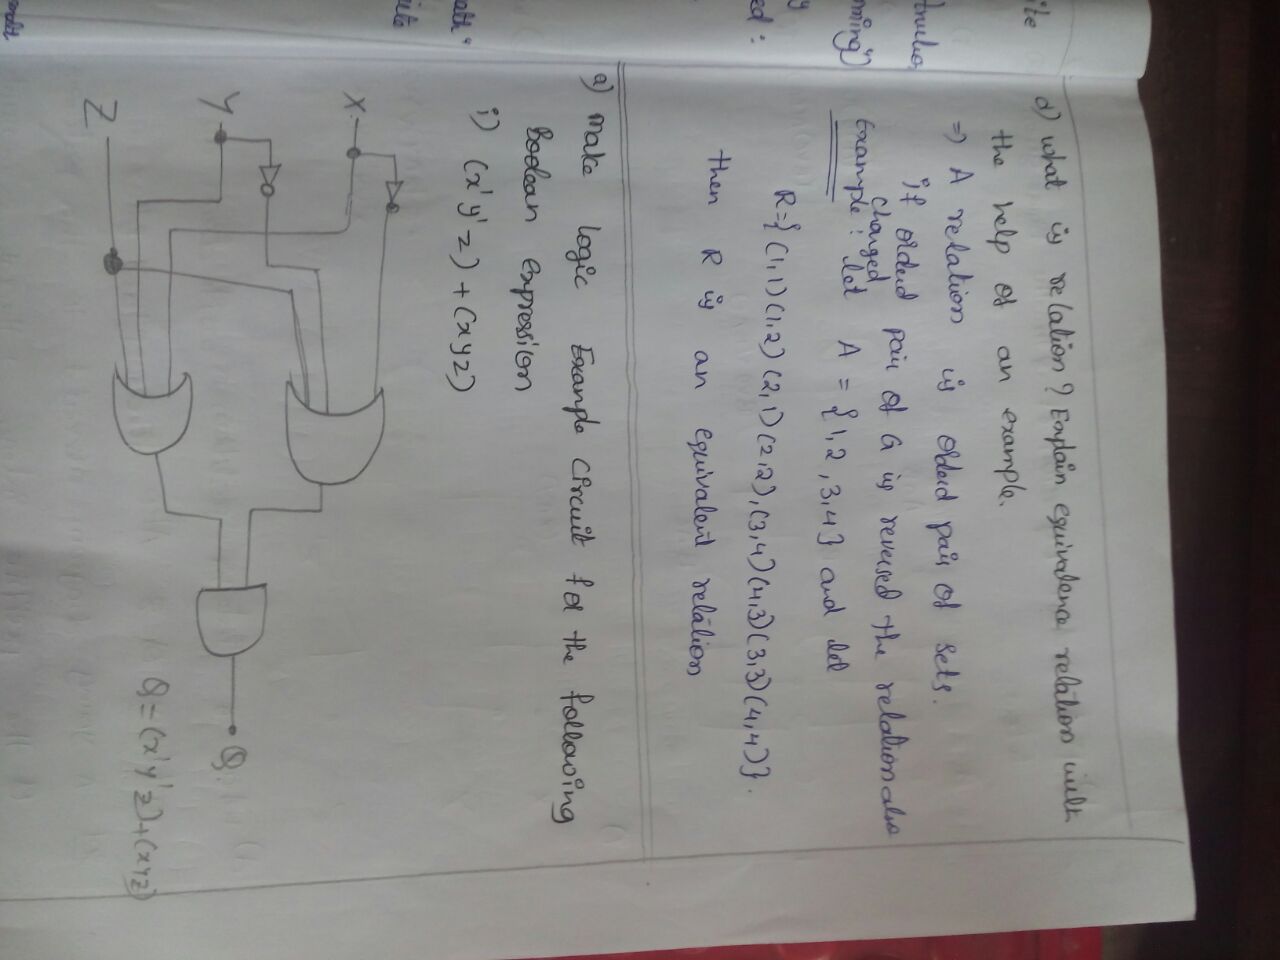 d) what is relation? Explain equivalence relation with
the help of an example.
⇒ A relation is orderd pair of sets.
if orderd pair of a is reversed the relation also
changed
Example: let A = {1,2,3,4} and let
R={(1,1)(1,2)(2,1)(2,2),(3,4)(4,3)(3,3)(4,4)}.
then R is an equivalent relation
a) Make logic Example circuit for the following
Boolean expression
i) (x'y'z)+(xyz)
X
Y
Z
Q
Q=(x'y'z)+(xyz)